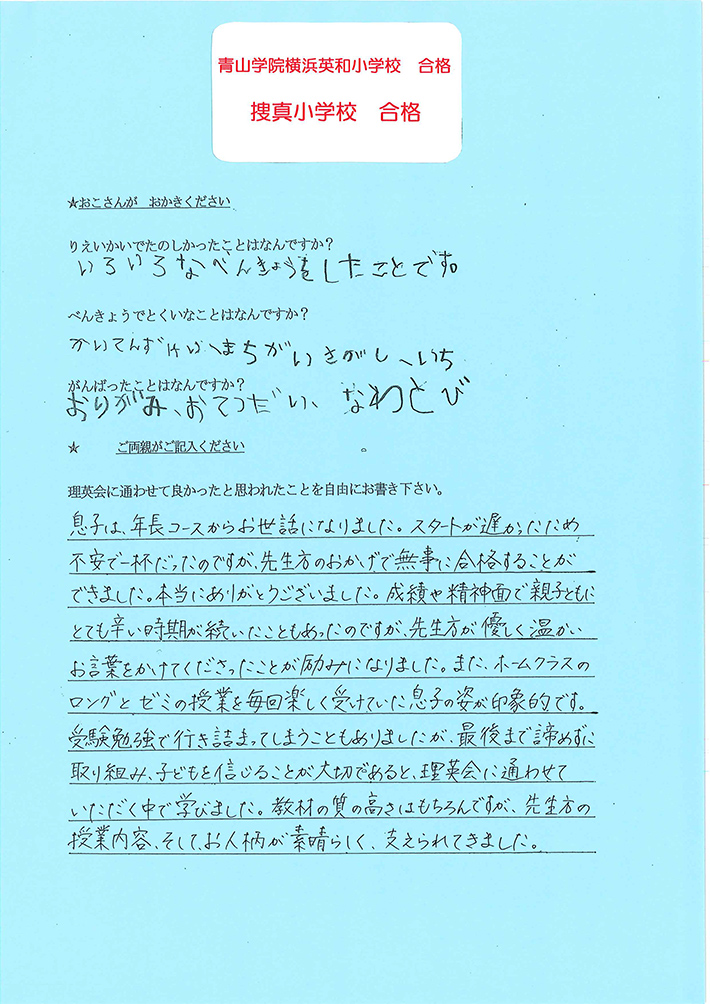 青山学院横浜英和小学校　合格
捜真小学校　合格
★おこさんが　おかきください
りえいかいでたのしかったことはなんですか？
いろいろなべんきょうをしたことです。
べんきょうでとくいなことはなんですか？
かいてんずけい、まちがいさがし、いち
がんばったことはなんですか？
おりがみ、おてつだい、なわとび
★　ご両親がご記入ください　。
理英会に通わせて良かったと思われたことを自由にお書き下さい。
息子は、年長コースからお世話になりました。スタートが遅かったため
不安で一杯だったのですが、先生方のおかげで無事に合格することが
できました。本当にありがとうございました。成績や精神面で親子ともに
とても辛い時期が続いたこともあったのですが、先生方が優しく温かい
お言葉をかけてくださったことが励みになりました。また、ホームクラスの
ロングとゼミの授業を毎回楽しく受けていた息子の姿が印象的です。
受験勉強で行き詰まってしまうこともありましたが、最後まで諦めずに
取り組み、子どもを信じることが大切であると、理英会に通わせて
いただく中で学びました。教材の質の高さはもちろんですが、先生方の
授業内容、そして、お人柄が素晴らしく、支えられてきました。